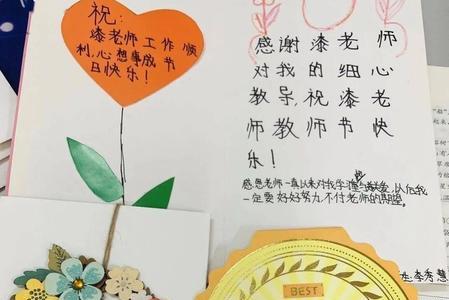 祝：
漆老师工作顺
利，心想事成节
日快乐！
感谢漆老师
对我的细心
教导，祝漆老
师教师节快
乐！
感恩老师一直以来对我学
关爱，从后我
一定要好好努力，不付老师的期望。
李秀慧
BEST